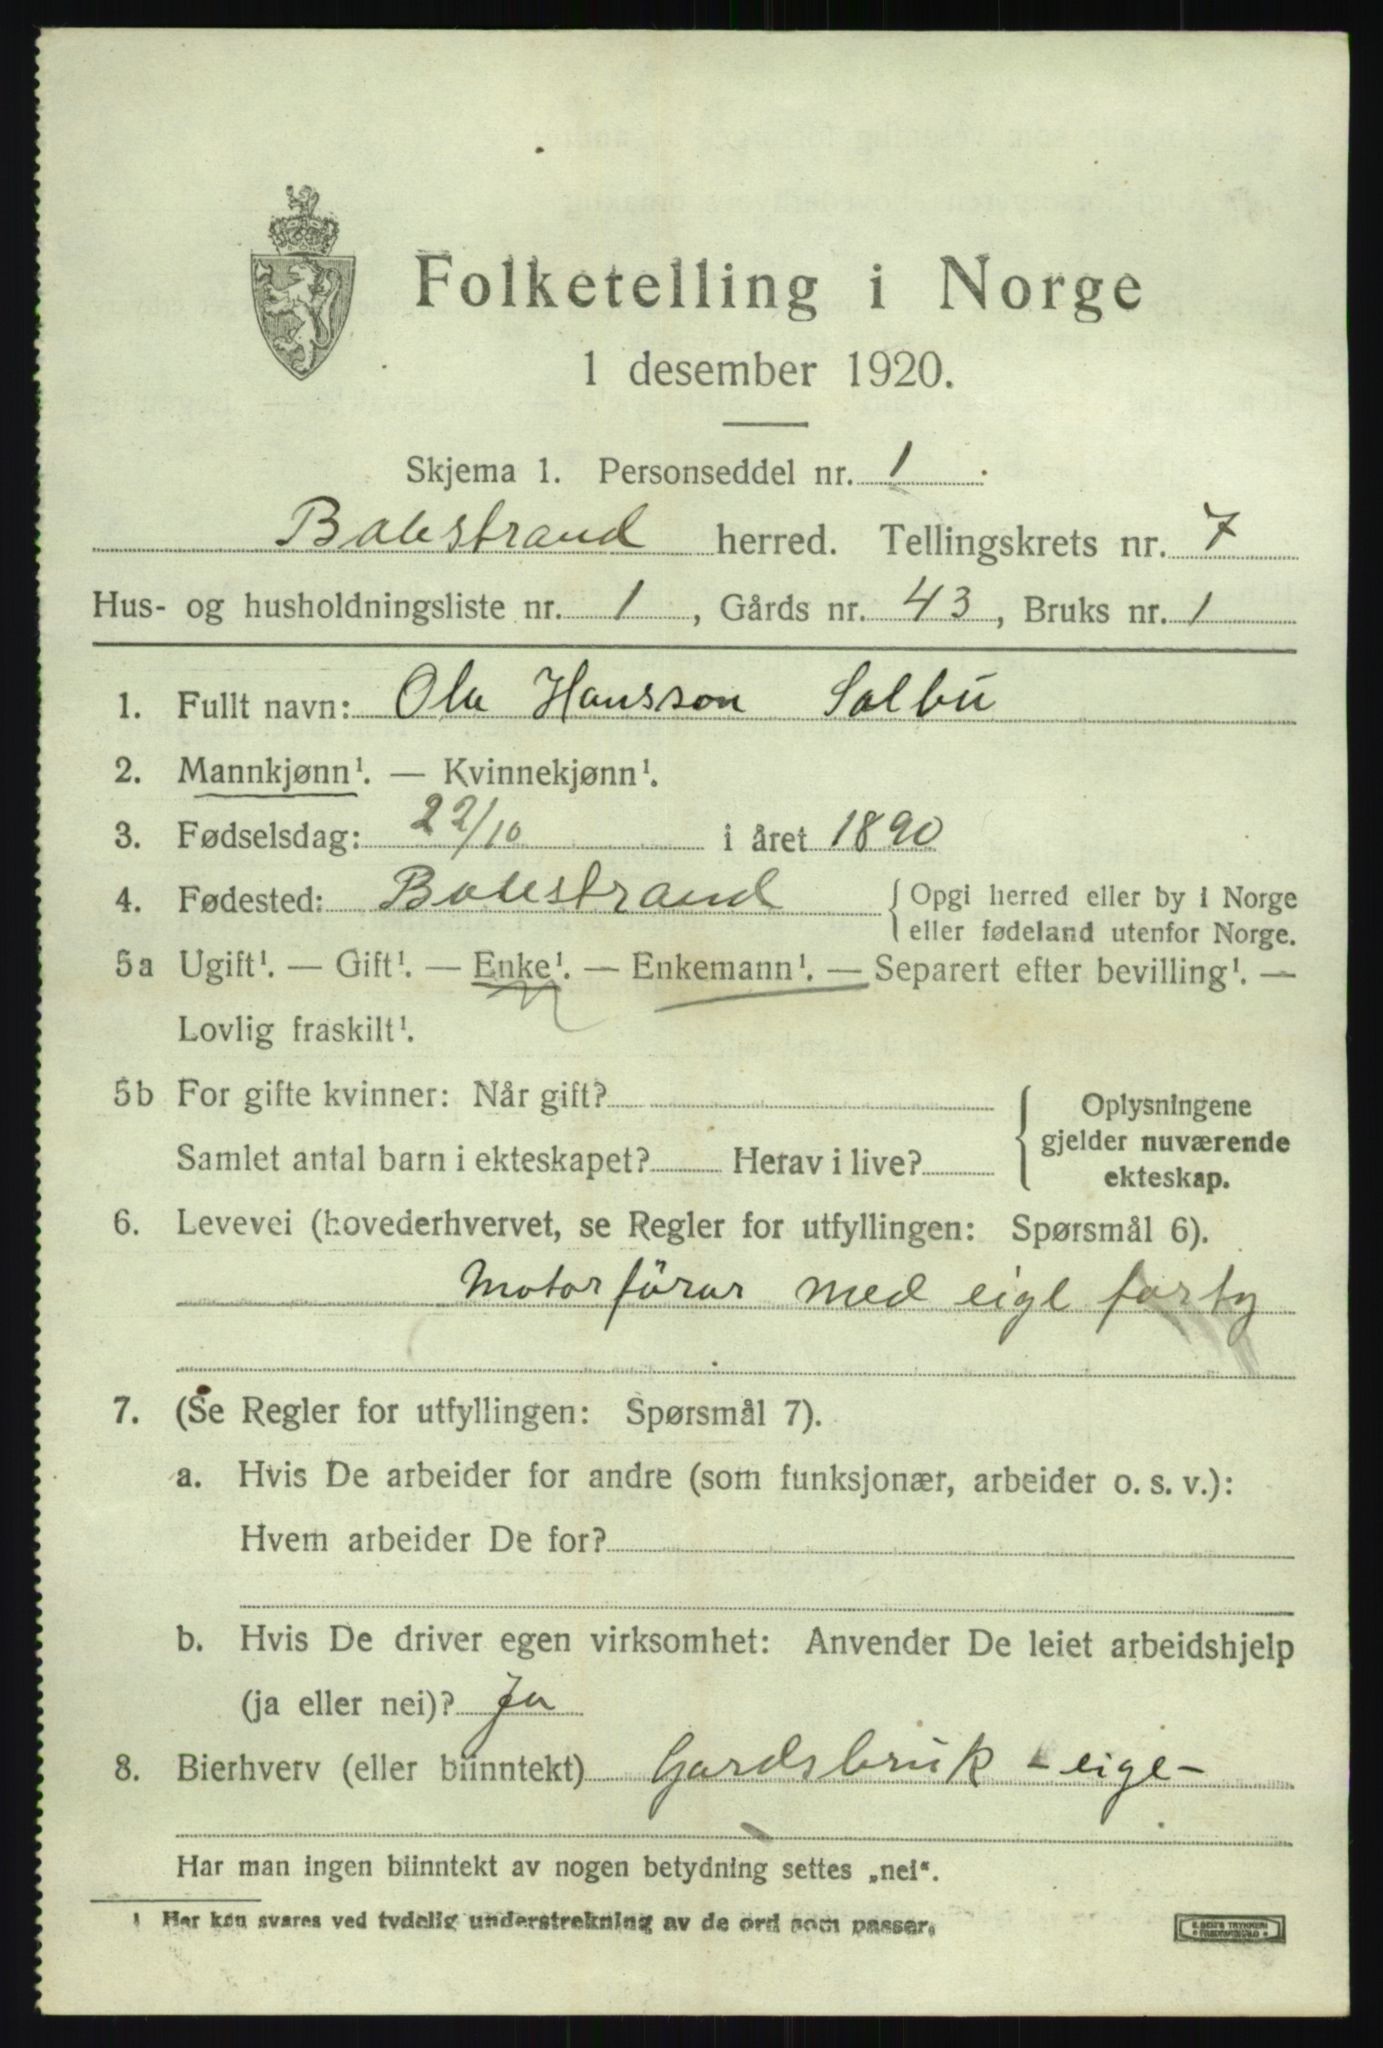 Folketelling i Norge
1 desember 1920.
Skjema 1. Personseddel nr. 1
Balestrand herred. Tellingskrets nr. 7
Hus- og husholdningsliste nr. 1, Gårds nr. 43, Bruks nr. 1
1. Fullt navn: Ola Hansson Salbu
2. Mannkjønn¹. — Kvinnekjønn¹.
3. Fødselsdag: 22/10 i året 1890
4. Fødested: Balestrand { Opgi herred eller by i Norge
eller fødeland utenfor Norge.
5a Ugift¹. — Gift¹. — Enke¹. — Enkemann¹. — Separert efter bevilling¹. —
Lovlig fraskilt¹.
5b For gifte kvinner: Når gift?
Samlet antal barn i ekteskapet? Herav i live?
Oplysningene
gjelder nuværende
ekteskap.
6. Levevei (hovederhvervet, se Regler for utfyllingen: Spørsmål 6).
Motorförar med eige farty
7. (Se Regler for utfyllingen: Spørsmål 7).
a. Hvis De arbeider for andre (som funksjonær, arbeider o. s. v.):
Hvem arbeider De for?
b. Hvis De driver egen virksomhet: Anvender De leiet arbeidshjelp
(ja eller nei)? Ja
8. Bierhverv (eller biinntekt) Gardsbruk - eige -
Har man ingen biinntekt av nogen betydning settes „nei“.
¹ Her kan svares ved tydelig understrekning av de ord som passer.